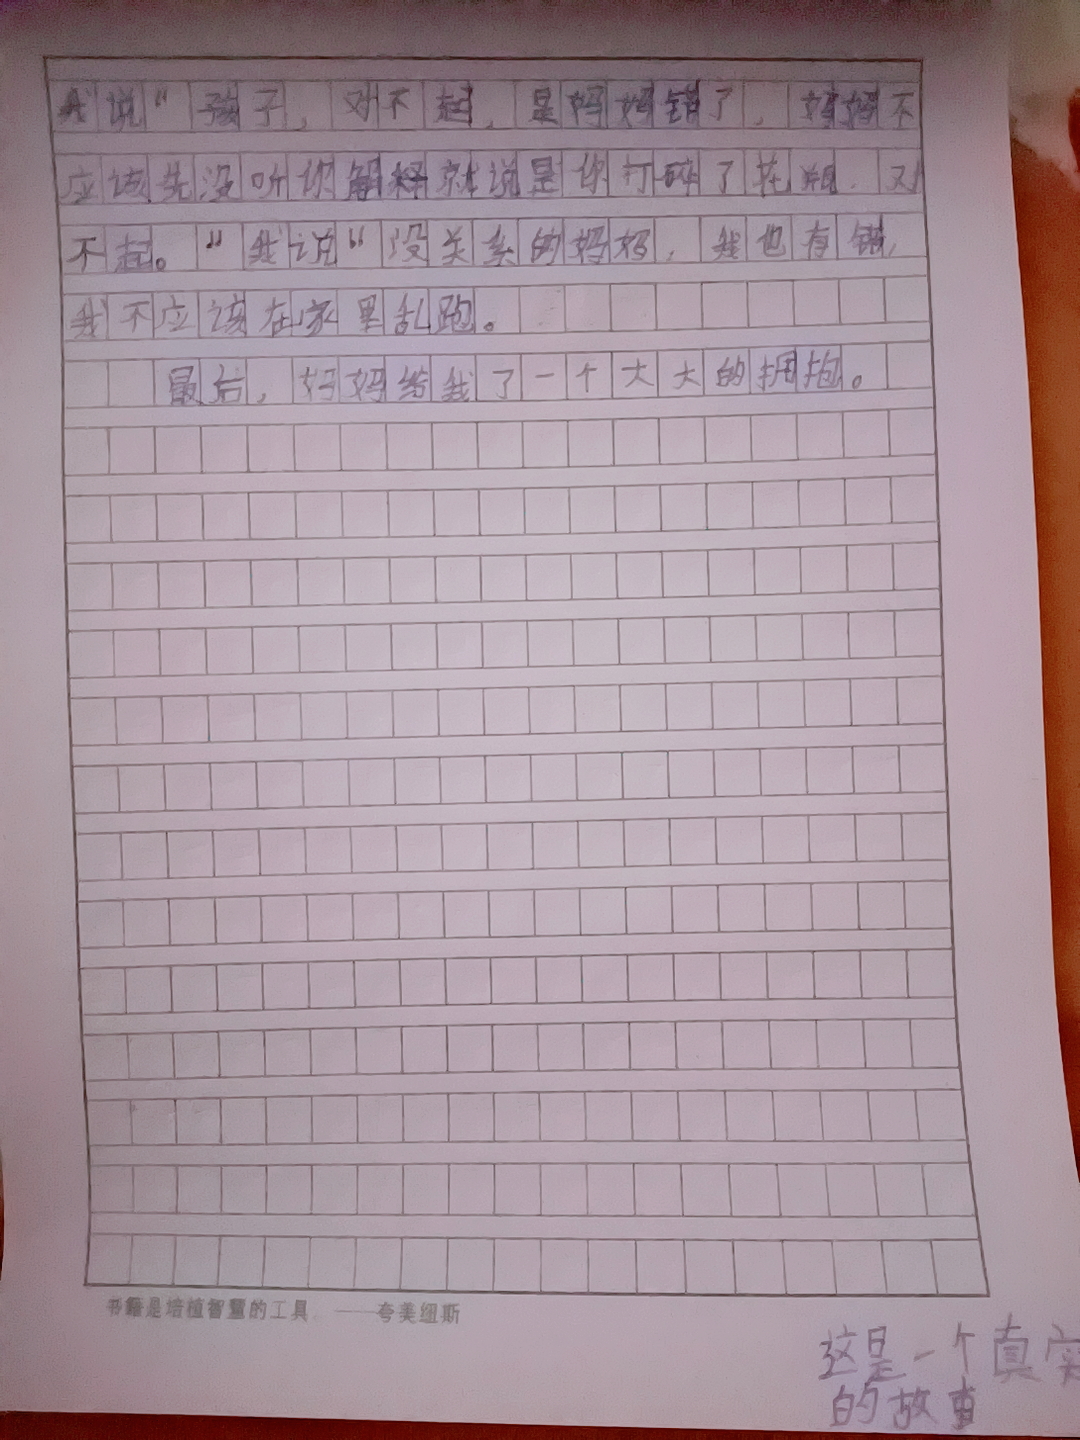 我说“孩子，对不起，是妈妈错了，妈妈不
应该先没听你解释就说是你打碎了花瓶．对
不起。“我说“没关系的妈妈，我也有错，
我不应该在家里乱跑。
最后，妈妈给我了一个大大的拥抱。
书籍是培植智慧的工具 ——夸美纽斯
这是一个真实
的故事